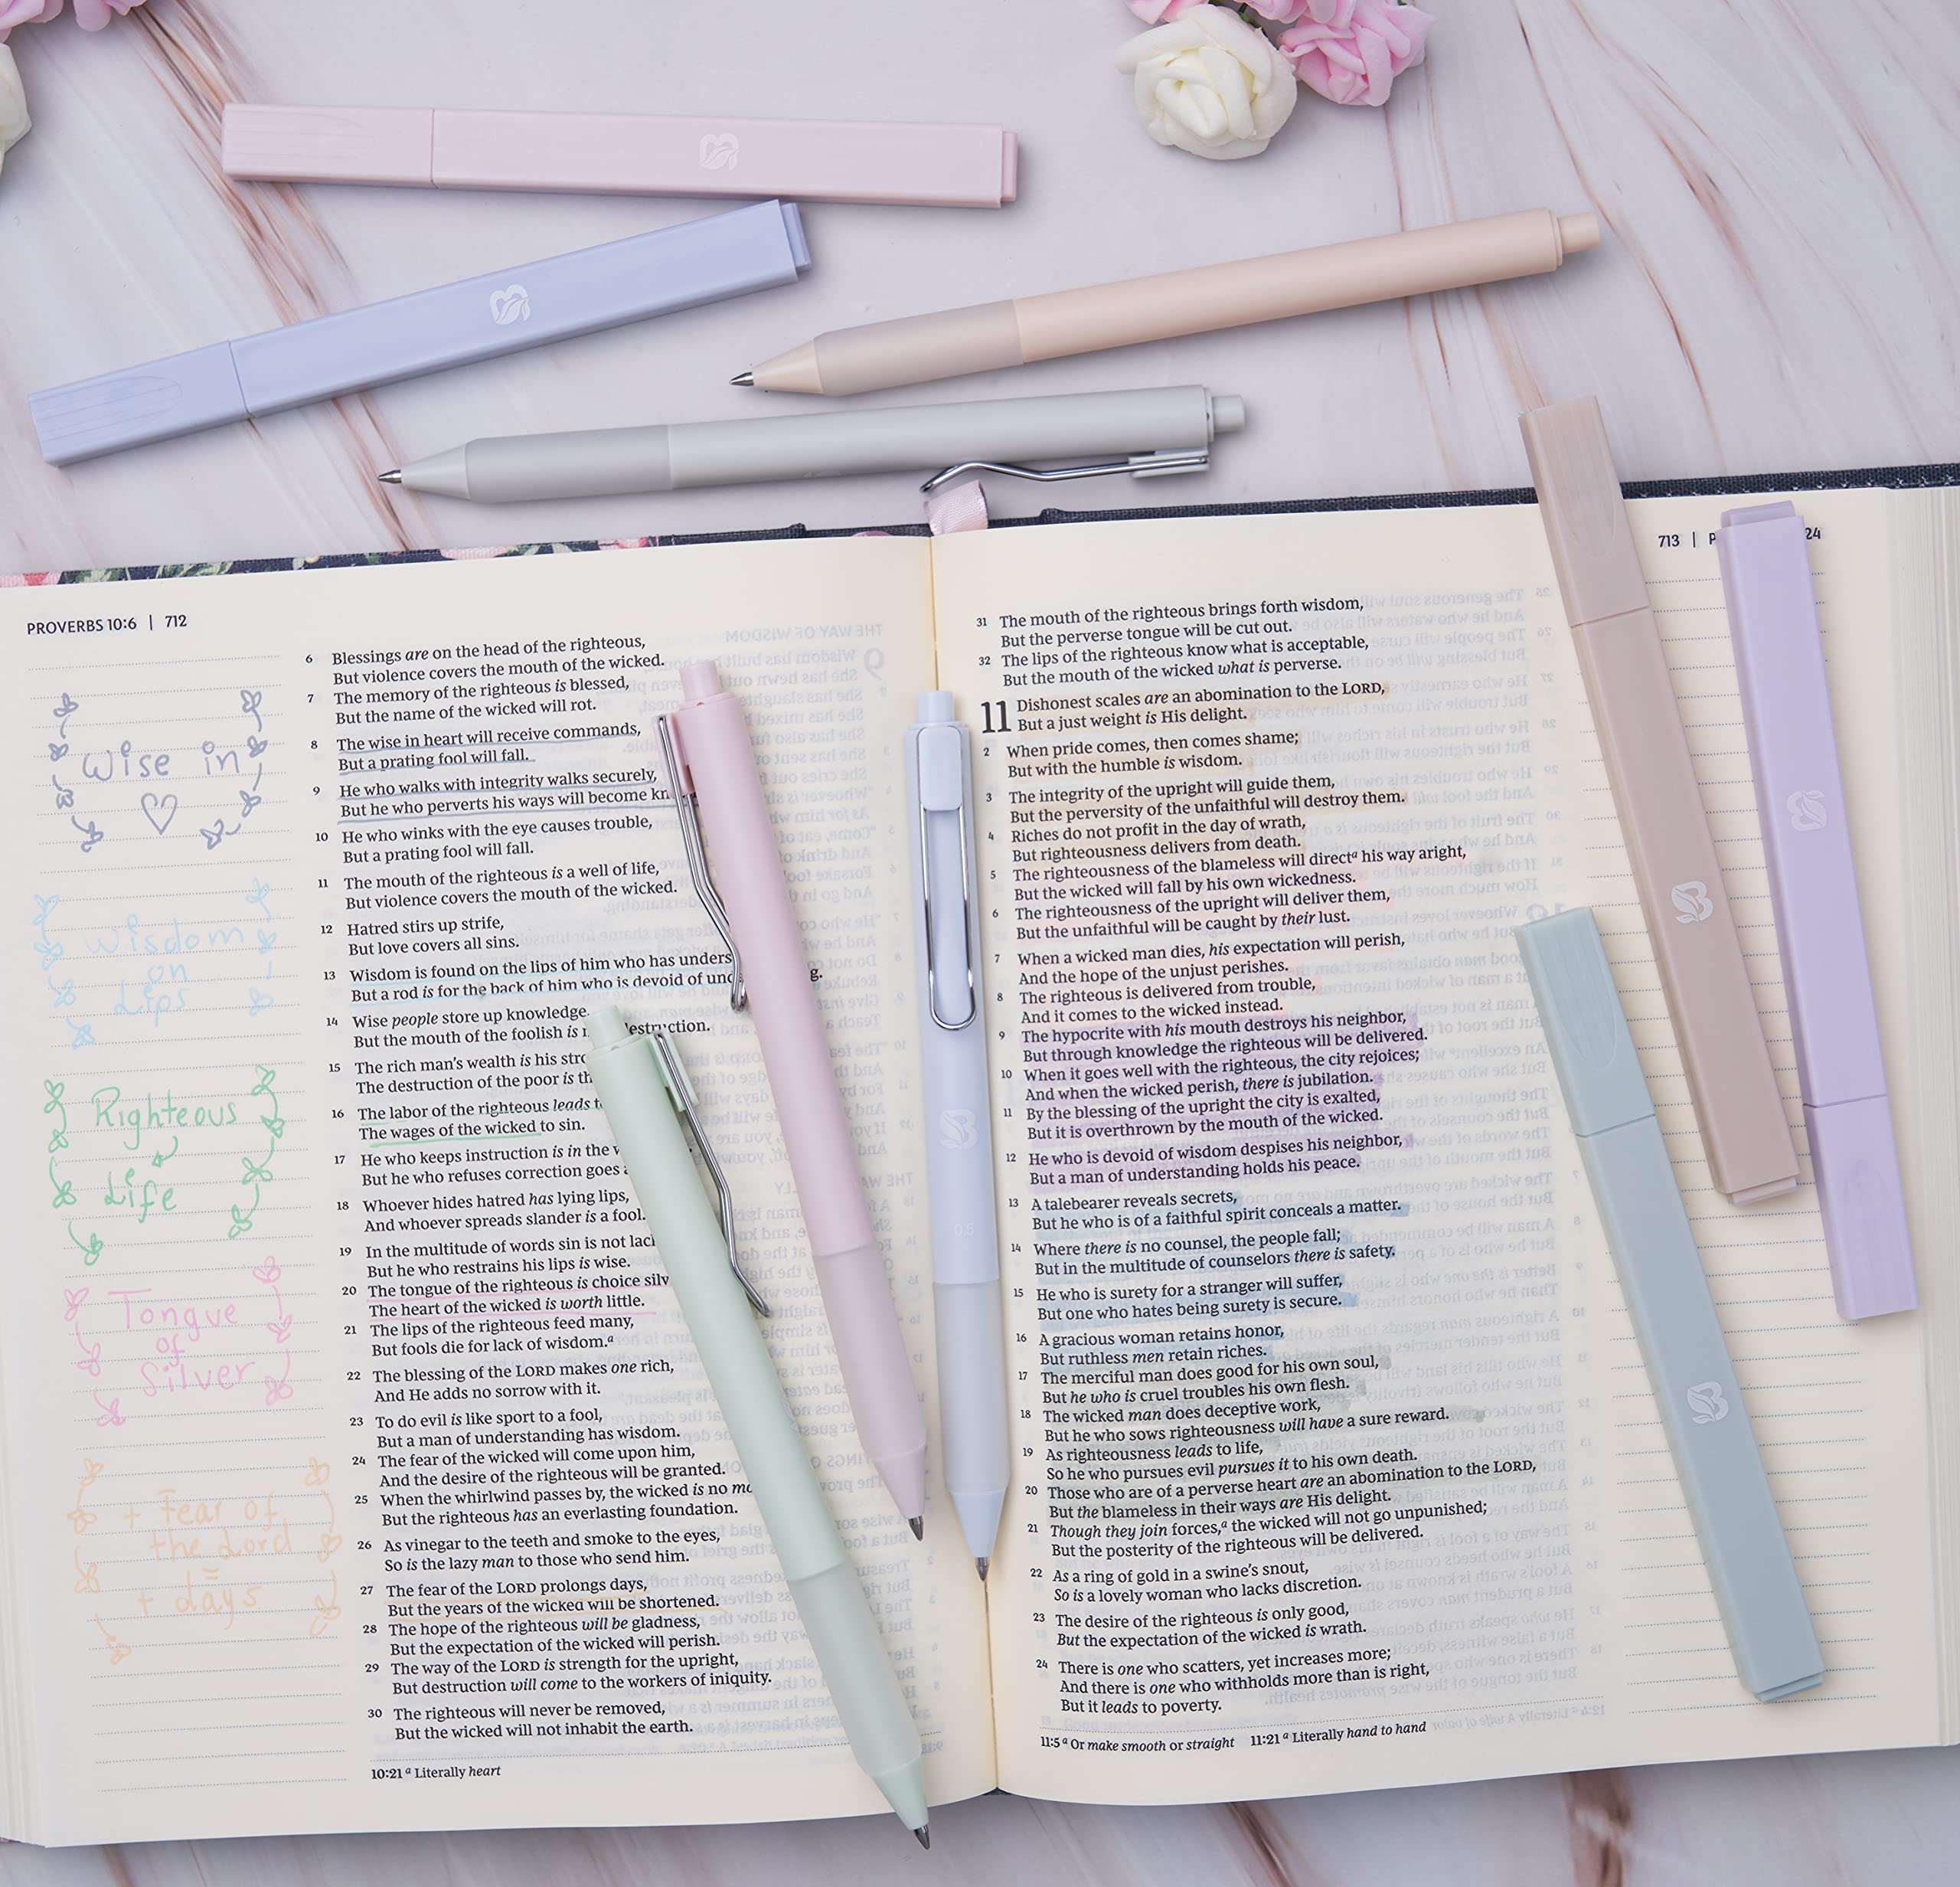 PROVERBS 10:6 | 712
Wise in
Wisdom
on
Lips
Righteous
Life
Tongue
of
Silver
+ Fear of
the Lord
=
+ days
6 Blessings are on the head of the righteous,
But violence covers the mouth of the wicked.
7 The memory of the righteous is blessed,
But the name of the wicked will rot.
8 The wise in heart will receive commands,
But a prating fool will fall.
9 He who walks with integrity walks securely,
But he who perverts his ways will become kn
10 He who winks with the eye causes trouble,
But a prating fool will fall.
11 The mouth of the righteous is a well of life,
But violence covers the mouth of the wicked.
12 Hatred stirs up strife,
But love covers all sins.
13 Wisdom is found on the lips of him who has unders g.
But a rod is for the back of him who is devoid of und
14 Wise people store up knowledge.
But the mouth of the foolish is estruction.
15 The rich man's wealth is his stro
The destruction of the poor is th
16 The labor of the righteous leads t
The wages of the wicked to sin.
17 He who keeps instruction is in the
But he who refuses correction goes
18 Whoever hides hatred has lying lips,
And whoever spreads slander is a fool.
19 In the multitude of words sin is not lack
But he who restrains his lips is wise.
20 The tongue of the righteous is choice silv
The heart of the wicked is worth little.
21 The lips of the righteous feed many,
But fools die for lack of wisdom.a
22 The blessing of the LORD makes one rich,
And He adds no sorrow with it.
23 To do evil is like sport to a fool,
But a man of understanding has wisdom.
24 The fear of the wicked will come upon him,
And the desire of the righteous will be granted.
25 When the whirlwind passes by, the wicked is no mo
But the righteous has an everlasting foundation.
26 As vinegar to the teeth and smoke to the eyes,
So is the lazy man to those who send him.
27 The fear of the LORD prolongs days,
But the years of the wicked will be shortened.
28 The hope of the righteous will be gladness,
But the expectation of the wicked will perish.
29 The way of the LORD is strength for the upright,
But destruction will come to the workers of iniquity.
30 The righteous will never be removed,
But the wicked will not inhabit the earth.
10:21 a Literally heart
0.5
713 | P 24
31 The mouth of the righteous brings forth wisdom,
But the perverse tongue will be cut out.
32 The lips of the righteous know what is acceptable,
But the mouth of the wicked what is perverse.
11 Dishonest scales are an abomination to the LORD,
But a just weight is His delight.
2 When pride comes, then comes shame;
But with the humble is wisdom.
3 The integrity of the upright will guide them,
But the perversity of the unfaithful will destroy them.
4 Riches do not profit in the day of wrath,
But righteousness delivers from death.
5 The righteousness of the blameless will directa his way aright,
But the wicked will fall by his own wickedness.
6 The righteousness of the upright will deliver them,
But the unfaithful will be caught by their lust.
7 When a wicked man dies, his expectation will perish,
And the hope of the unjust perishes.
8 The righteous is delivered from trouble,
And it comes to the wicked instead.
9 The hypocrite with his mouth destroys his neighbor,
But through knowledge the righteous will be delivered.
10 When it goes well with the righteous, the city rejoices;
And when the wicked perish, there is jubilation.
11 By the blessing of the upright the city is exalted,
But it is overthrown by the mouth of the wicked.
12 He who is devoid of wisdom despises his neighbor,
But a man of understanding holds his peace.
13 A talebearer reveals secrets,
But he who is of a faithful spirit conceals a matter.
14 Where there is no counsel, the people fall;
But in the multitude of counselors there is safety.
15 He who is surety for a stranger will suffer,
But one who hates being surety is secure.
16 A gracious woman retains honor,
But ruthless men retain riches.
17 The merciful man does good for his own soul,
But he who is cruel troubles his own flesh.
18 The wicked man does deceptive work,
But he who sows righteousness will have a sure reward.
19 As righteousness leads to life,
So he who pursues evil pursues it to his own death.
20 Those who are of a perverse heart are an abomination to the LORD,
But the blameless in their ways are His delight.
21 Though they join forces,a the wicked will not go unpunished;
But the posterity of the righteous will be delivered.
22 As a ring of gold in a swine's snout,
So is a lovely woman who lacks discretion.
23 The desire of the righteous is only good,
But the expectation of the wicked is wrath.
24 There is one who scatters, yet increases more;
And there is one who withholds more than is right,
But it leads to poverty.
11:5 a Or make smooth or straight 11:21 a Literally hand to hand